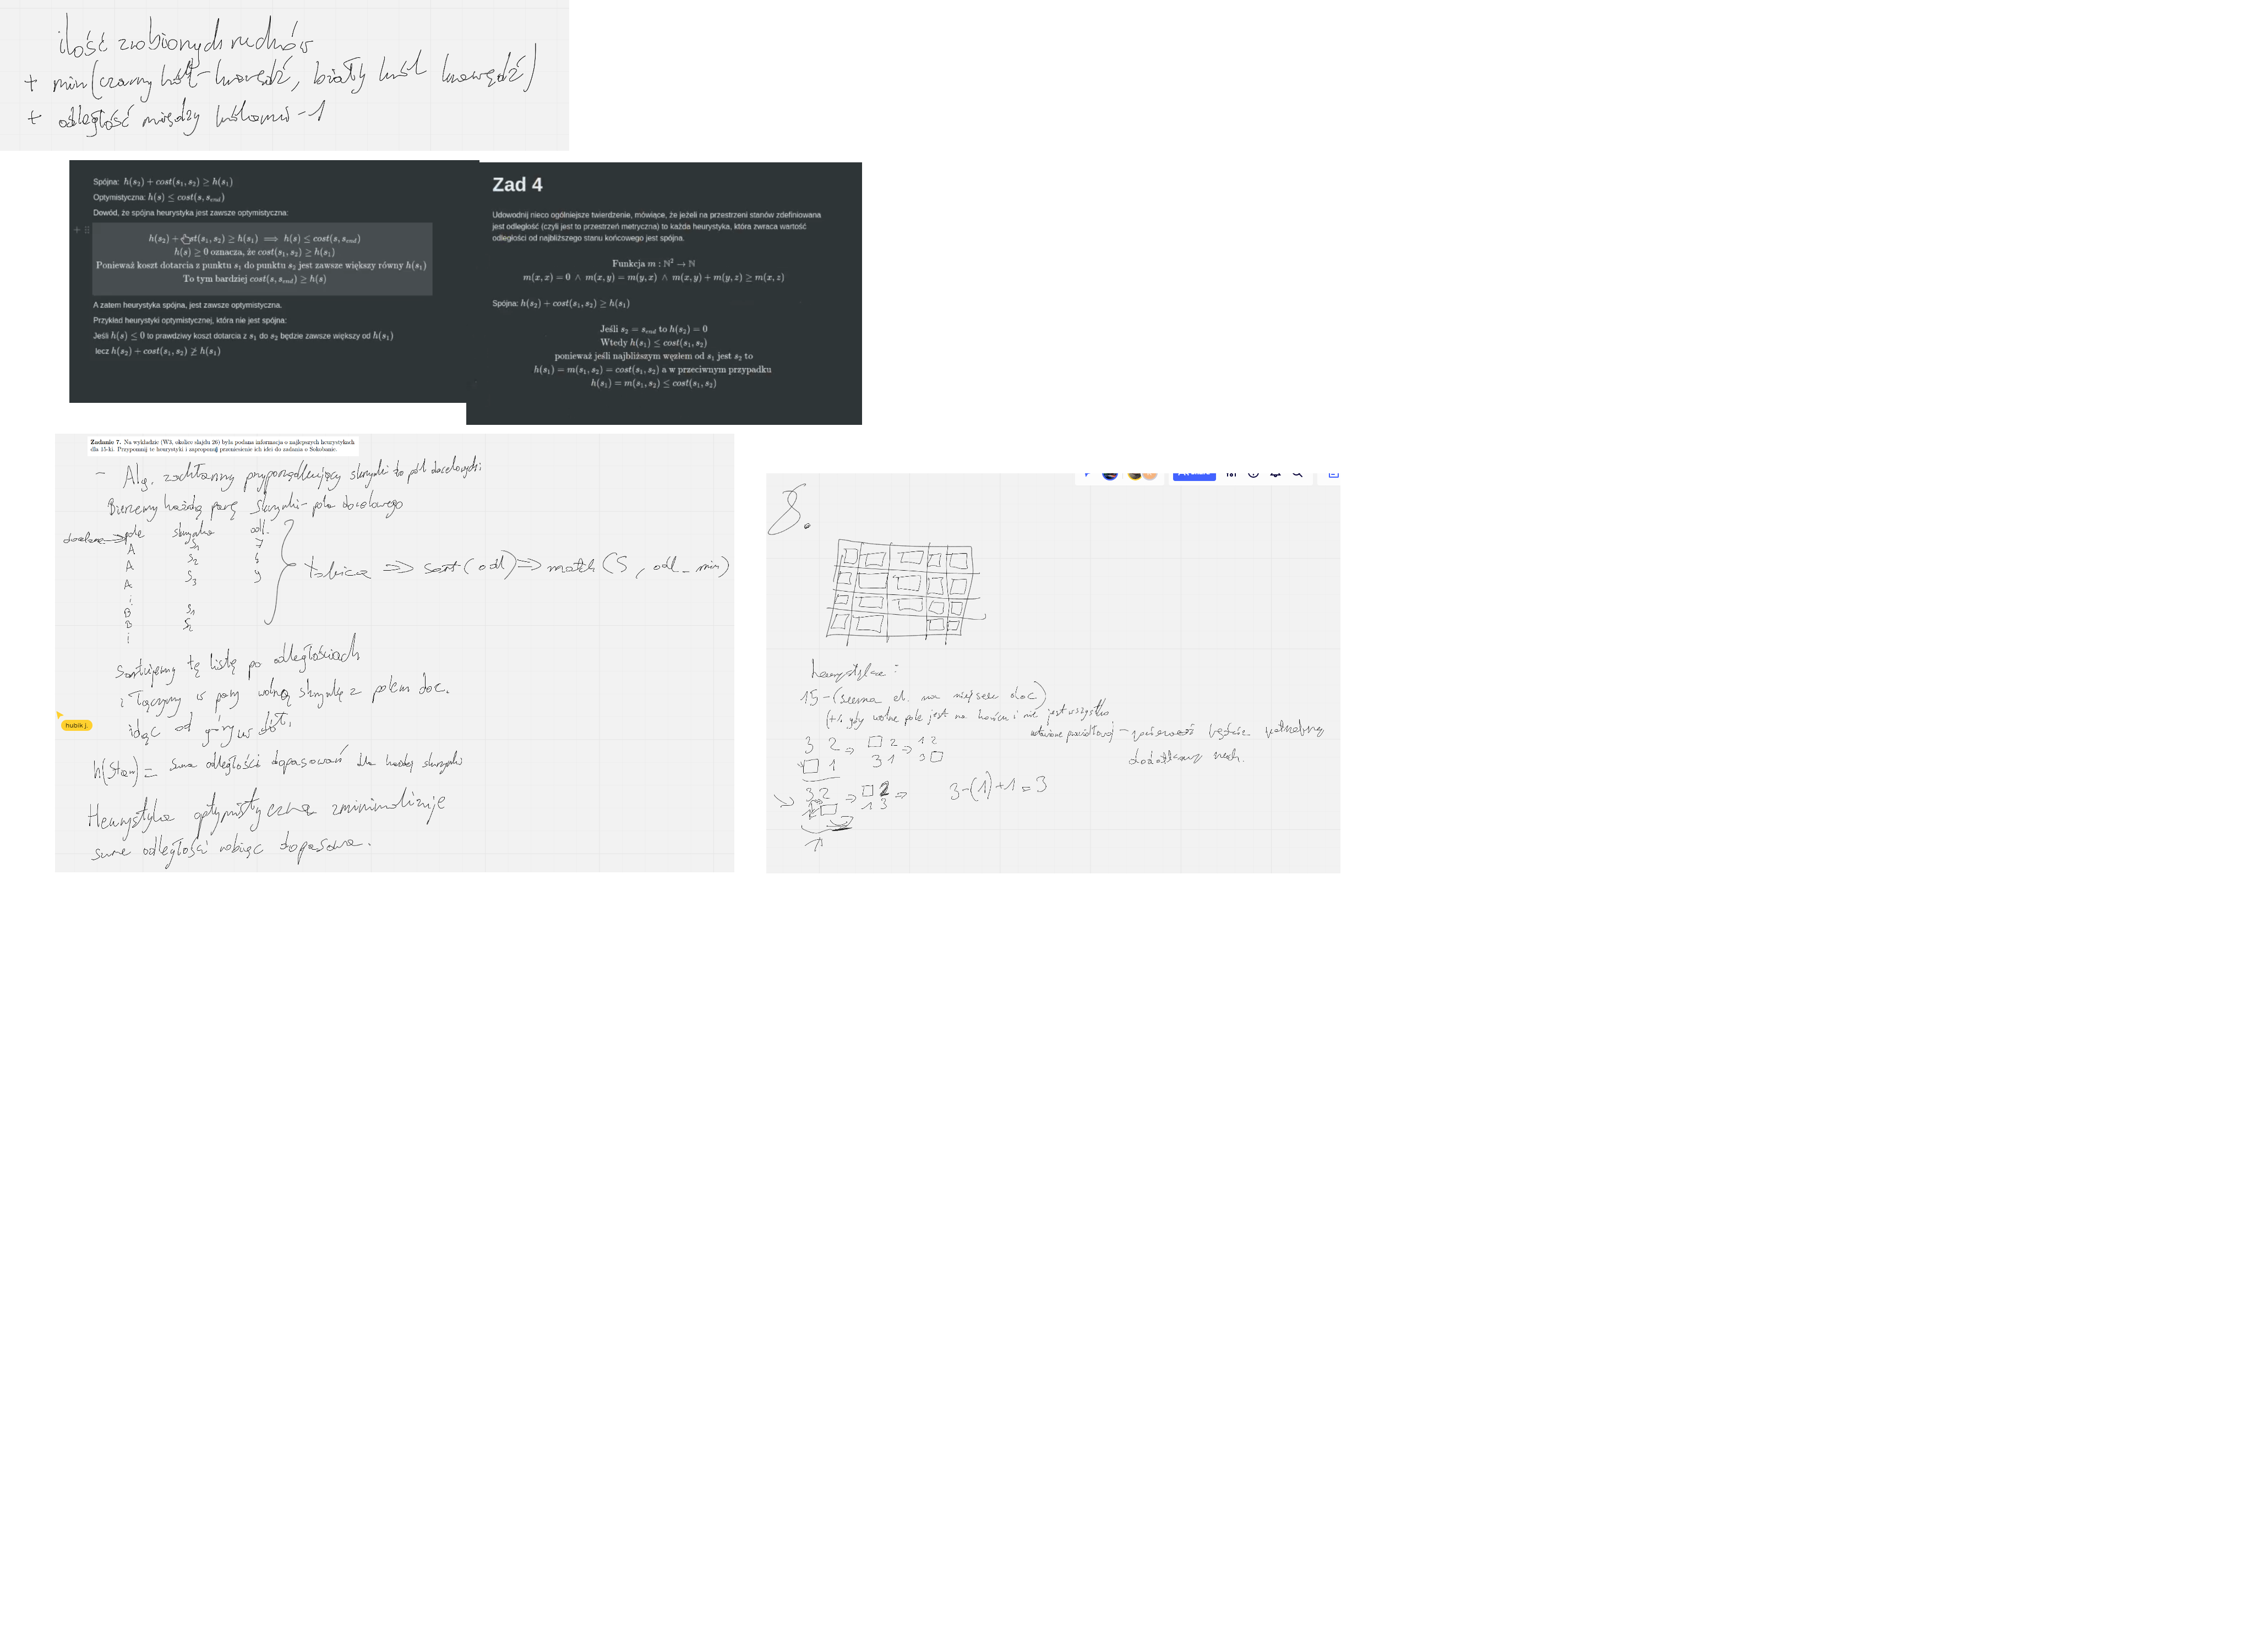 ilość zrobionych ruchów
+ min(czarny król-krawędź, biały król krawędź)
+ odległość między królami -1
Spójna: h(s₂) + cost(s₁, s₂) ≥ h(s₁)
Optymistyczna: h(s) ≤ cost(s, s_end)
Dowód, że spójna heurystyka jest zawsze optymistyczna:
h(s₂) + cost(s₁, s₂) ≥ h(s₁) ⟹ h(s) ≤ cost(s, s_end)
h(s) ≥ 0 oznacza, że cost(s₁, s₂) ≥ h(s₁)
Ponieważ koszt dotarcia z punktu s₁ do punktu s₂ jest zawsze większy równy h(s₁)
To tym bardziej cost(s, s_end) ≥ h(s)
A zatem heurystyka spójna, jest zawsze optymistyczna.
Przykład heurystyki optymistycznej, która nie jest spójna:
Jeśli h(s) ≤ 0 to prawdziwy koszt dotarcia z s₁ do s₂ będzie zawsze większy od h(s₁)
lecz h(s₂) + cost(s₁, s₂) ≱ h(s₁)
Zad 4
Udowodnij nieco ogólniejsze twierdzenie, mówiące, że jeżeli na przestrzeni stanów zdefiniowana
jest odległość (czyli jest to przestrzeń metryczna) to każda heurystyka, która zwraca wartość
odległości od najbliższego stanu końcowego jest spójna.
Funkcja m : ℕ² → ℕ
m(x, x) = 0 ∧ m(x, y) = m(y, x) ∧ m(x, y) + m(y, z) ≥ m(x, z)
Spójna: h(s₂) + cost(s₁, s₂) ≥ h(s₁)
Jeśli s₂ = s_end to h(s₂) = 0
Wtedy h(s₁) ≤ cost(s₁, s₂)
ponieważ jeśli najbliższym węzłem od s₁ jest s₂ to
h(s₁) = m(s₁, s₂) = cost(s₁, s₂) a w przeciwnym przypadku
h(s₁) = m(s₁, s₂) ≤ cost(s₁, s₂)
Zadanie 7. Na wykładzie (W3, okolice slajdu 26) była podana informacja o najlepszych heurystykach
dla 15-ki. Przypomnij te heurystyki i zaproponuj przeniesienie ich idei do zadania o Sokobanie.
- Alg. zachłanny przyporządkujący skrzynki do pól docelowych:
Bierzemy każdą parę skrzynki-pola docelowego
docelowe pole skrzynka odl.
A S₁ 7
A S₂
A S₃ 9
⋮
B S₁
B S₂
⋮
tablica ⇒ sort(odl) ⇒ match(S, odl_min)
Sortujemy tę listę po odległościach
i łączymy w pary wolną skrzynkę z polem doc.
idąc od góry w dół.
h(Stan) = suma odległości dopasowań dla każdej skrzynki
Heurystyka optymistyczna zminimalizuje
sume odległości robiąc dopasowa.
hubik j.
8.
heurystyka:
15-(suma el. na miejscu doc)
(+1 gdy wolne pole jest na końcu i nie jest wszystko
ustawione prawidłowo) - ponieważ będzie potrzebny
dodatkowy ruch.
3 2 ⇒ □ 2 ⇒ 1 2
□ 1 3 1 3 □
3 2 ⇒ □ 2 ⇒ 3-(1)+1=3
□ 1 3